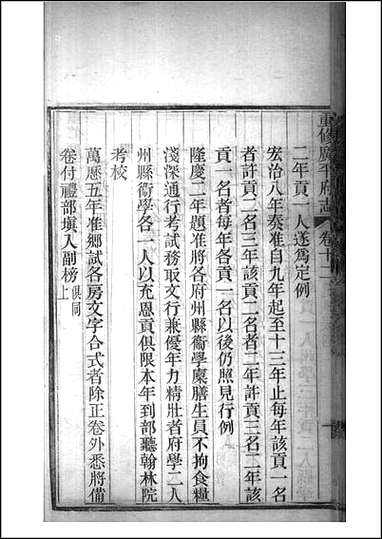 重修廣平府志 卷十二
二年貢一人遂爲定例
宏治八年奏准自九年起至十三年止每年該貢一名
者許貢二名三年該貢二名者二年許貢三名二年該
貢一名者每年各貢一名以後仍照見行例
隆慶二年題准將各府州縣衛學廩膳生員不拘食糧
淺深通行考試務取文行兼優年力精壯者府學二人
州縣衛學各一人以充恩貢俱限本年到部聽翰林院
考校
萬歷五年准鄉試各房文字合式者除正卷外悉將備
卷付禮部塡入副榜俱同上